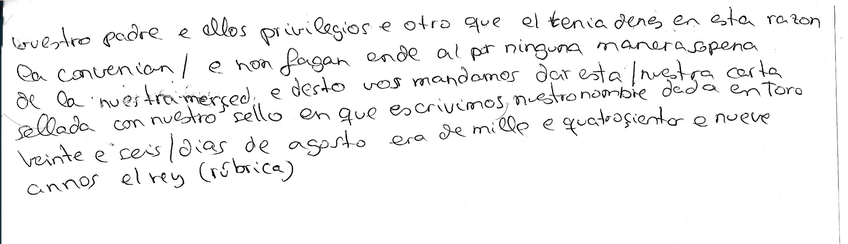 nuestro padre e ellos privilegios e otro que el tenia denes en esta razon
la convenian / e non fagan ende al por ninguna manera sopena
de la nuestra merçed. e desto vos mandamos dar esta / nuestra carta
sellada con nuestro sello en que escrivimos nuestro nombre dada en Toro
veinte e seis / dias de agosto era de mille e quatroçientos e nueve
annos el rey (rúbrica)